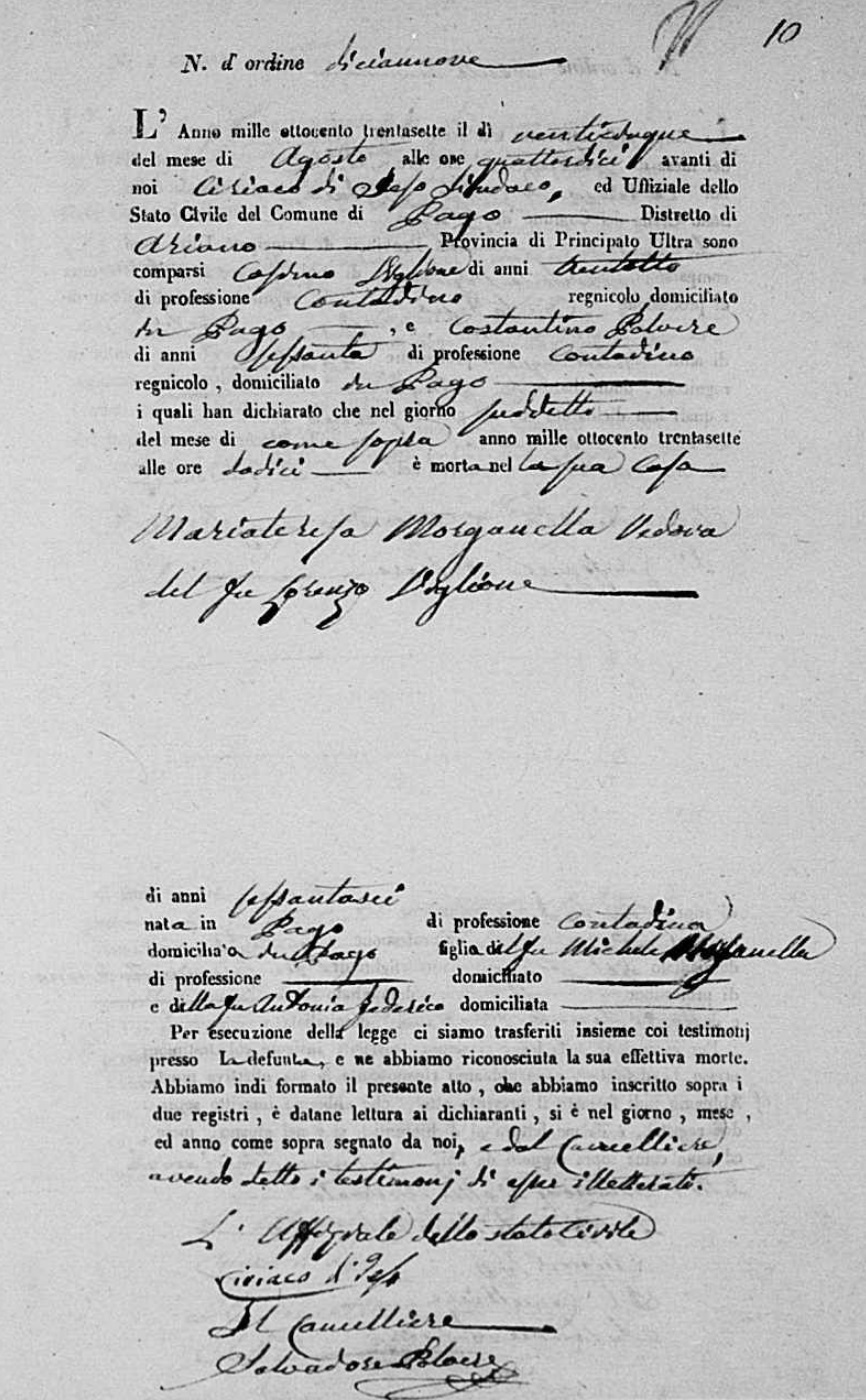 10
N. d'ordine diciannove
L' Anno mille ottocento trentasette il dì venticinque
del mese di Agosto alle ore quattordici avanti di
noi Ciriaco di Jeso Sindaco, ed Uffiziale dello
Stato Civile del Comune di Pago Distretto di
Ariano Provincia di Principato Ultra sono
comparsi Cosimo Viglione di anni trentotto
di professione Contadino regnicolo domiciliato
in Pago , e Costantino Polvere
di anni sessanta di professione contadino
regnicolo , domiciliato in Pago
i quali han dichiarato che nel giorno suddetto
del mese di come sopra anno mille ottocento trentasette
alle ore dodici è morta nel la sua casa
Mariateresa Morganella Vedova
del fu Lorenzo Viglione
di anni sessantasei
nata in Pago di professione contadina
domiciliata in Pago figlia del fu Michele Morganella
di professione domiciliato
e della fu Antonia Federico domiciliata
Per esecuzione della legge ci siamo trasferiti insieme coi testimonj
presso la defunta, e ne abbiamo riconosciuta la sua effettiva morte.
Abbiamo indi formato il presente atto , che abbiamo inscritto sopra i
due registri , è datane lettura ai dichiaranti , si è nel giorno , mese ,
ed anno come sopra segnato da noi, e dal Cancelliere,
avendo detto i testimonj di esser illetterati.
L' Uffiziale dello stato Civile
Ciriaco d'Jeso
Il Cancelliere
Salvadore Polvere